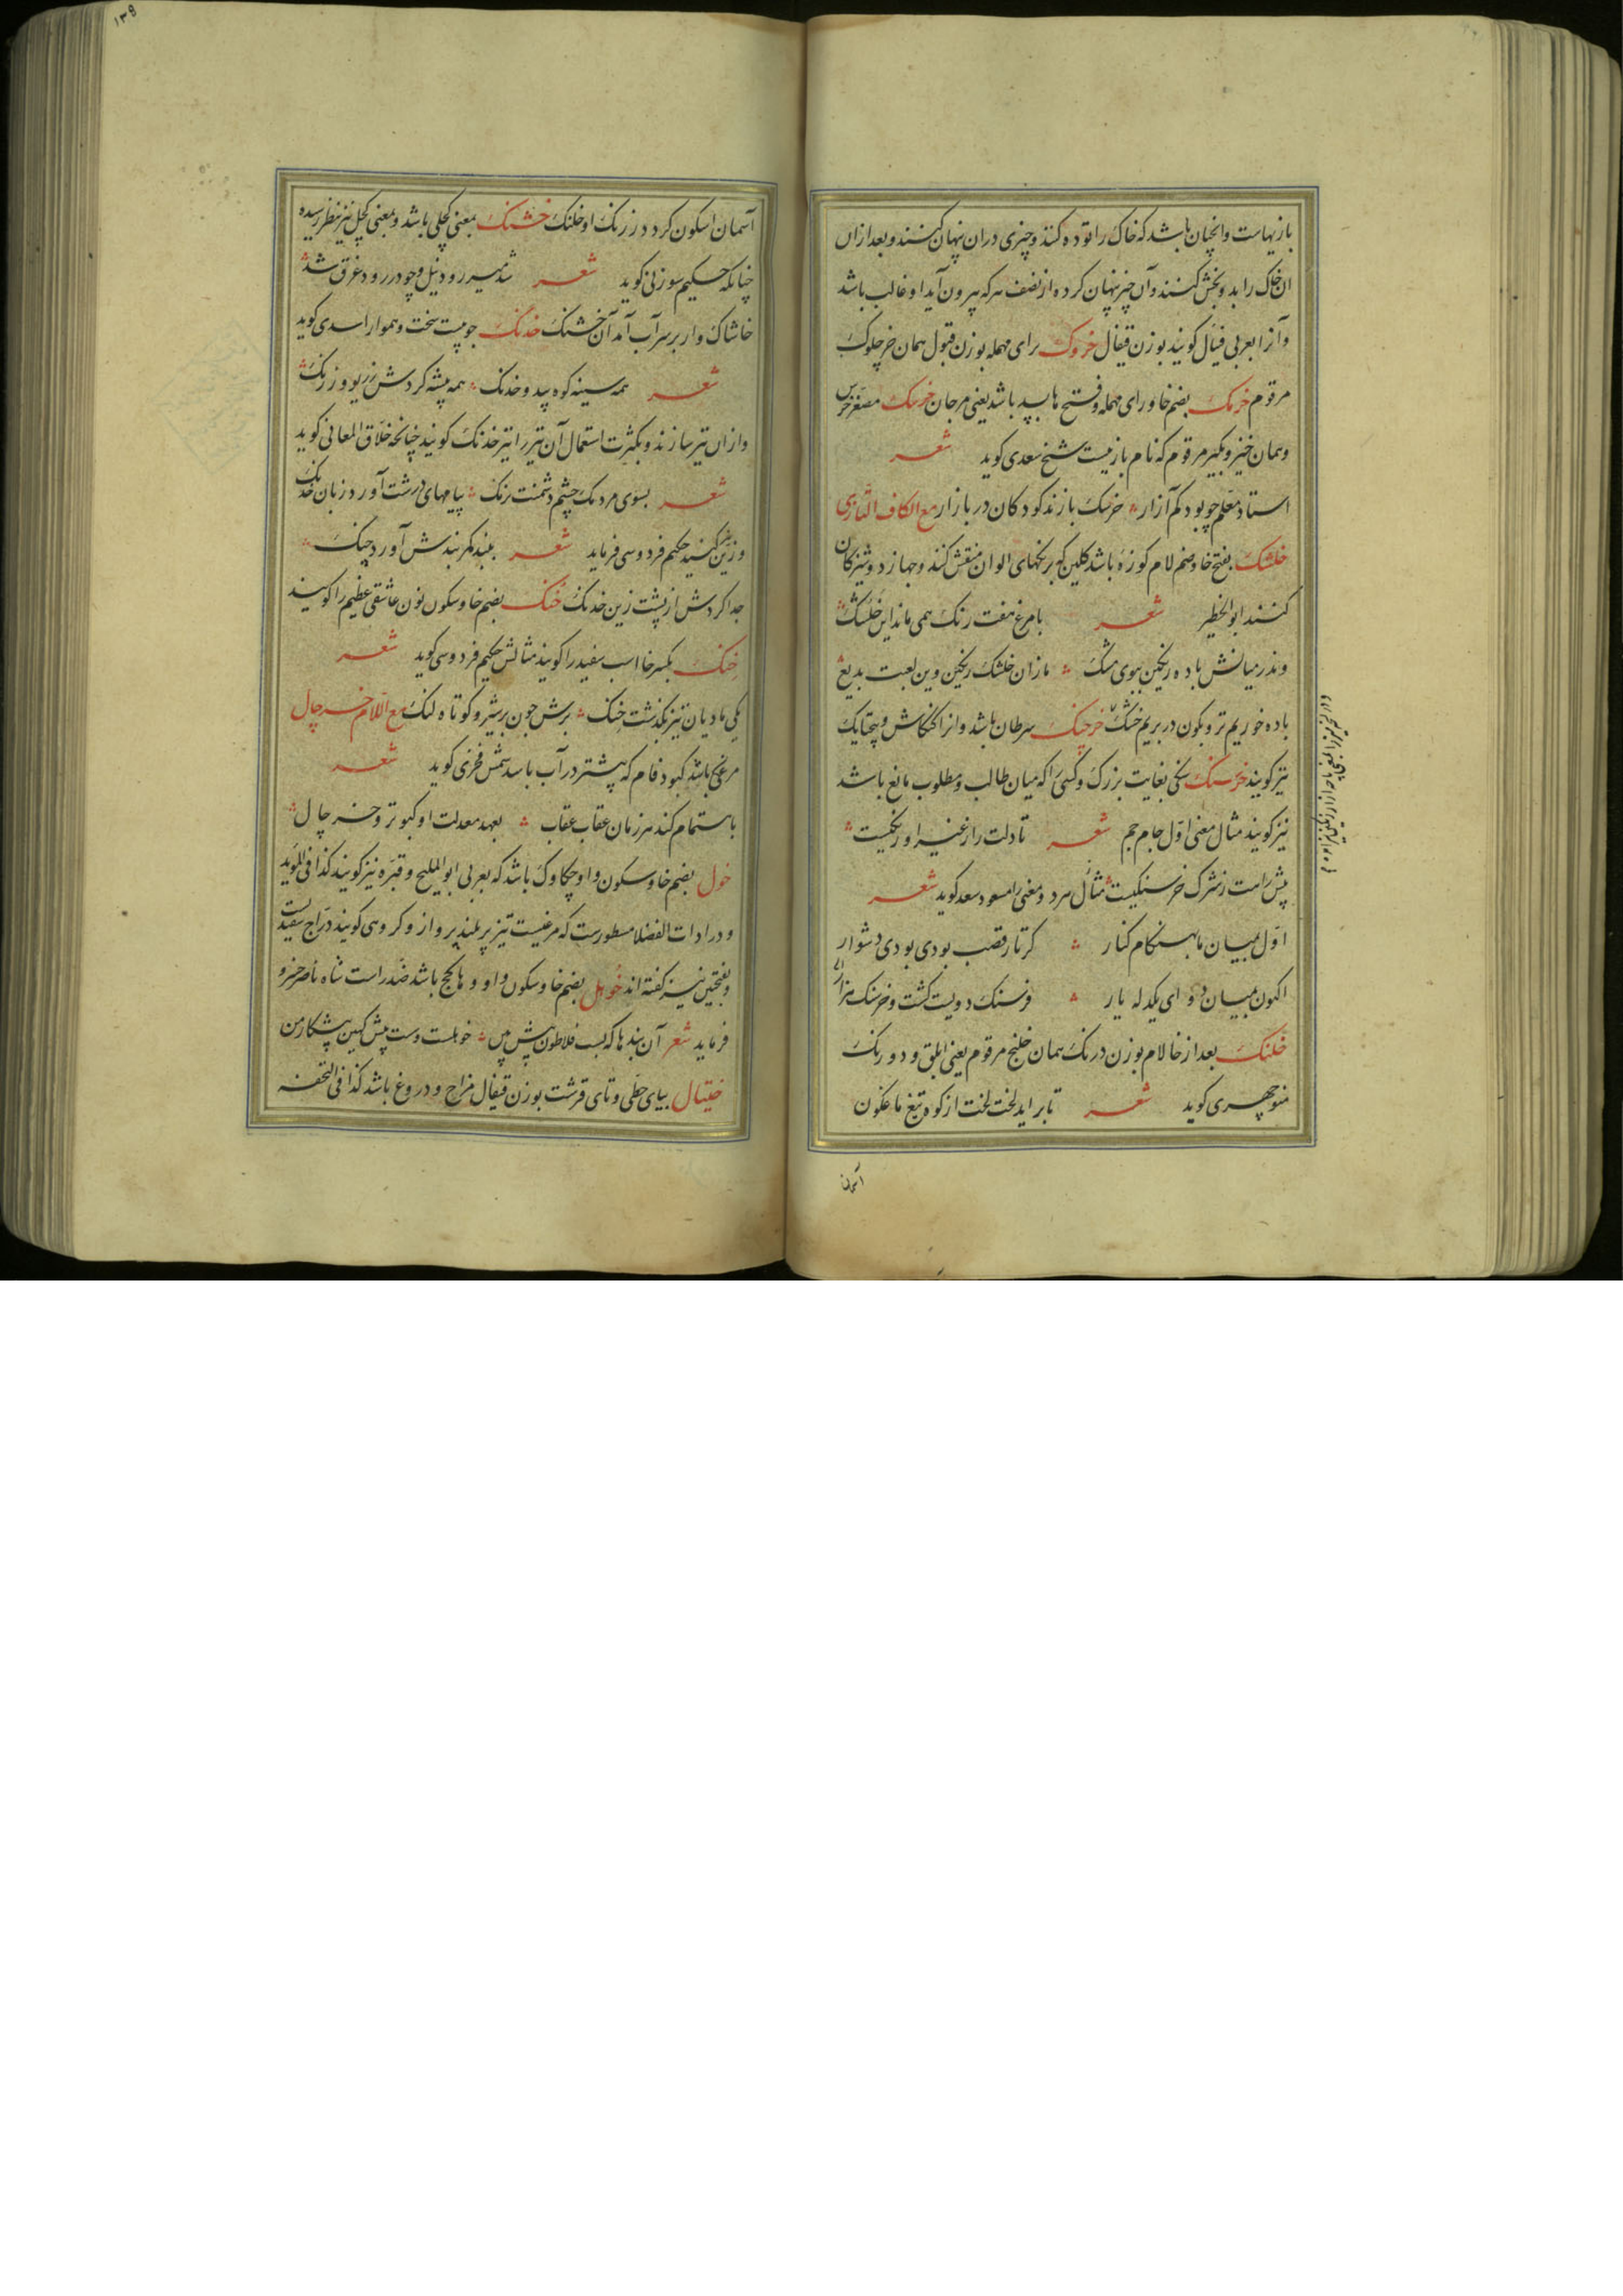 بازیهاست وانچنان باشد که خاک را توده کنند و چیزی دران پنهان کنند و بعد ازان
ان خاک را بدو بخش کنند و آن چیز پنهان کرده از نصف هرکه بیرون آید او غالب باشد
و آنرا بعربی فیال کویند بوزن قیفال خروک برای مهمله بوزن قبول همان خرچلوک
مرقوم خرمک بضم خا و رای مهمله و فتح ها بسد باشد یعنی مرجان خرسک مصغر خرس
و همان خیز و بکیر مرقوم که نام بازیست شیخ سعدی کوید شعر
استاد معلم چو بود کم آزار خرسک بازند کودکان در بازار مع الکاف التازی
خلشک بفتح خا و ضم لام کوزه باشد کلین که برنکهای الوان منقش کنند و جهاز دوشیزکان
کنند ابو الخطیر شعر با مرغ هفت رنک همی ماند این خلشک
وندر میانش باده رنکین ببوی مشک مازان خلشک رنکین وین لعبت بدیع
باده خوریم تر و بکون در بریم خشک خرچنک سرطان باشد وانرا کنکاش و پنجپایک
نیز کویند خرسنک سنکی بغایت بزرک و کسی را که میان طالب و مطلوب مانع باشد
نیز کویند مثال معنی اول جام جم شعر تا دلت را ز غیر او رنکیست
پیش راهت ز شرک خرسنکیست مثال هر دو معنی را مسعود سعد کوید شعر
اول بمیان ما بهنکام کنار کر تار قصب بودی بودی دشوار
اکنون بمیان دو ای یکدله یار فرسنک دویست کشت و خرسنک هزار
خلنک بعد از خا لام بوزن درنک همان خلنج مرقوم یعنی ابلق و دو رنک
منوچهری کوید شعر تا براید لخت لخت از کوه تیغ ماغکون
آسمان
۱۳۹
آسمان اسکون کردد ز رنک او خلنک خشنک بمعنی کچلی باشد و بمعنی کچل نیز بنظر رسیده
چنانکه حکیم سوزنی کوید شعر شد میر رود نیل و چو در رود غرق شد
خاشاک وار بر سر آب آمد آن خشنک خدنک چوبیست سخت و هموار اسدی کوید
شعر همه سینه کوه بید و خدنک همه بیشه کردش زریو و زرنک
و ازان تیر سازند و بکثرت استعمال آن تیر را تیر خدنک کویند چنانچه خلاق المعانی کوید
شعر بسوی مردمک چشم دشمنت برنک پیامهای درشت آورد زبان خدنک
و زین نیز کنند حکیم فردوسی فرماید شعر ببند کمر بندش آورد چنک
جدا کردش از پشت زین خدنک خنک بضم خا و سکون نون عاشقی عظیم را کویند
خنک بکسر خا اسب سفید را کویند مثالش حکیم فردوسی کوید شعر
یکی مادیان تیز بکذشت خنک برش چون بر شیر و کوتاه لنک مع اللام خرچال
مرغی باشد کبود فام که بیشتر در آب باشد شمس فخری کوید شعر
باهتمام کند هر زمان عقاب عقاب بعهد معدلت او کبوتر و خرچال
خول بضم خا و سکون واو چکاوک باشد که بعربی ابو الملیح و قبره نیز کویند کذا فی المؤید
و در ادات الفضلا مسطورست که مرغیست تیز پر بلند پرواز و کروهی کویند دراج سفیدست
و بفتحتین نیز کفته اند خوهل بضم خا و سکون واو و ها کج باشد ضد راست شاه ناصر خسرو
فرماید شعر آن بند ها که بست فلاطون پیش بین خوهلست و سست پیش کهین پیشکار من
ختیال بیای حطی و تای قرشت بوزن قیفال مزاح و دروغ باشد کذا فی التحفه